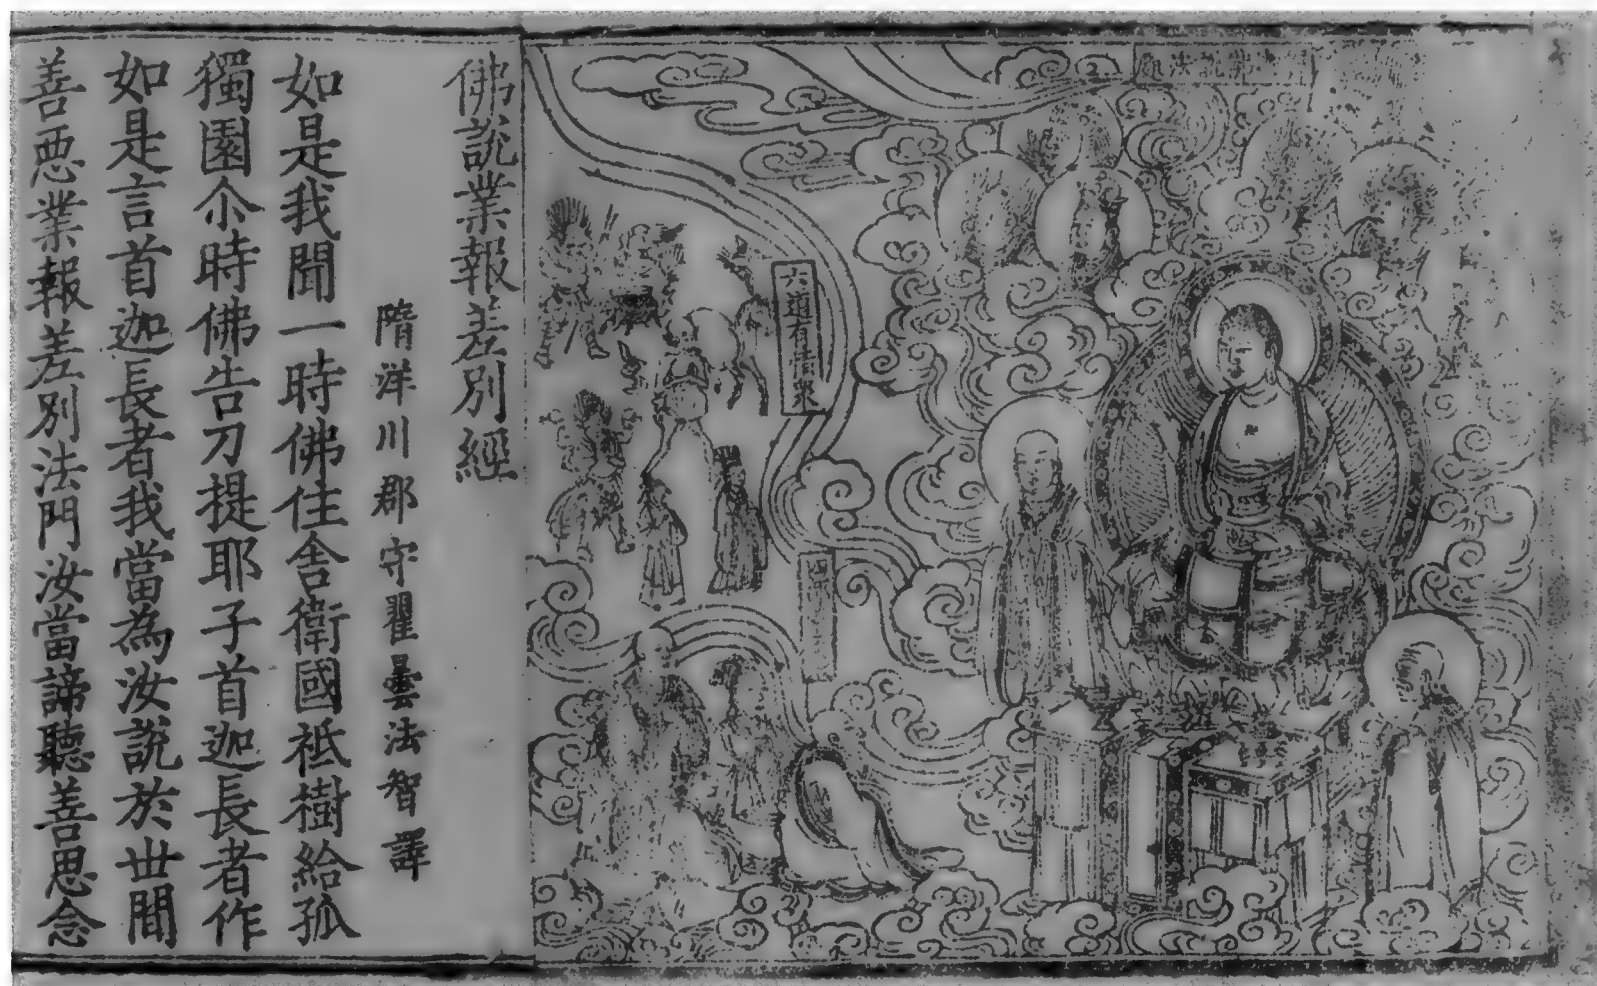 六道有情衆
佛說業報差別經
隋洋川郡守瞿曇法智譯
如是我聞一時佛住舍衛國祇樹給孤
獨園尒時佛告刀提耶子首迦長者作
如是言首迦長者我當為汝說於世間
善𢙣業報差別法門汝當諦聽善思念